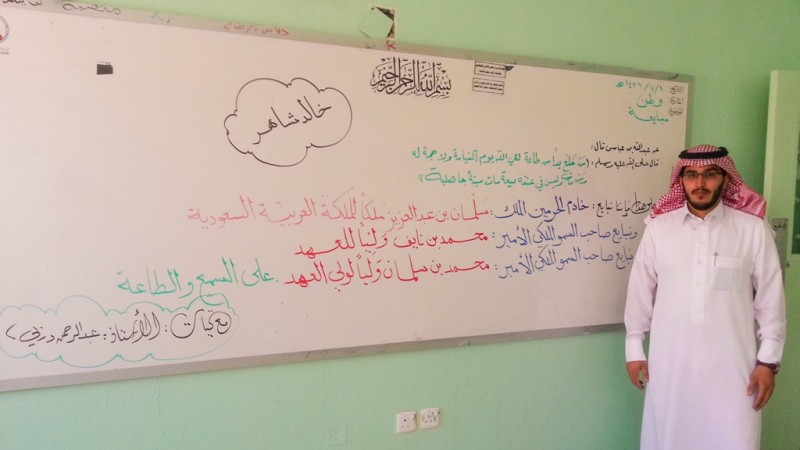 بسم الله الرحمن الرحيم
خالد شاهر
١٤٣٦/٧/٦هـ
التاريخ
المادة
وطن
الموضوع
مبايعة
عن عبدالله بن عباس قال:
قال صلى الله عليه وسلم: (من خلع يداً من طاعة لقي الله يوم القيامة ولا حجة له
ومن مات وليس في عنقه بيعة مات ميتة جاهلية»
وعلى هذا فإننا نبايع: خادم الحرمين الملك: سلمان بن عبدالعزيز ملكاً للملكة العربية السعودية
ونبايع صاحب السمو الملكي الأمير: محمد بن نايف ولياً للعهد
ونبايع صاحب السمو الملكي الأمير: محمد بن سلمان ولياً لولي العهد. على السمع والطاعة
مع تحيات: الأستاذ: عبدالرحمن